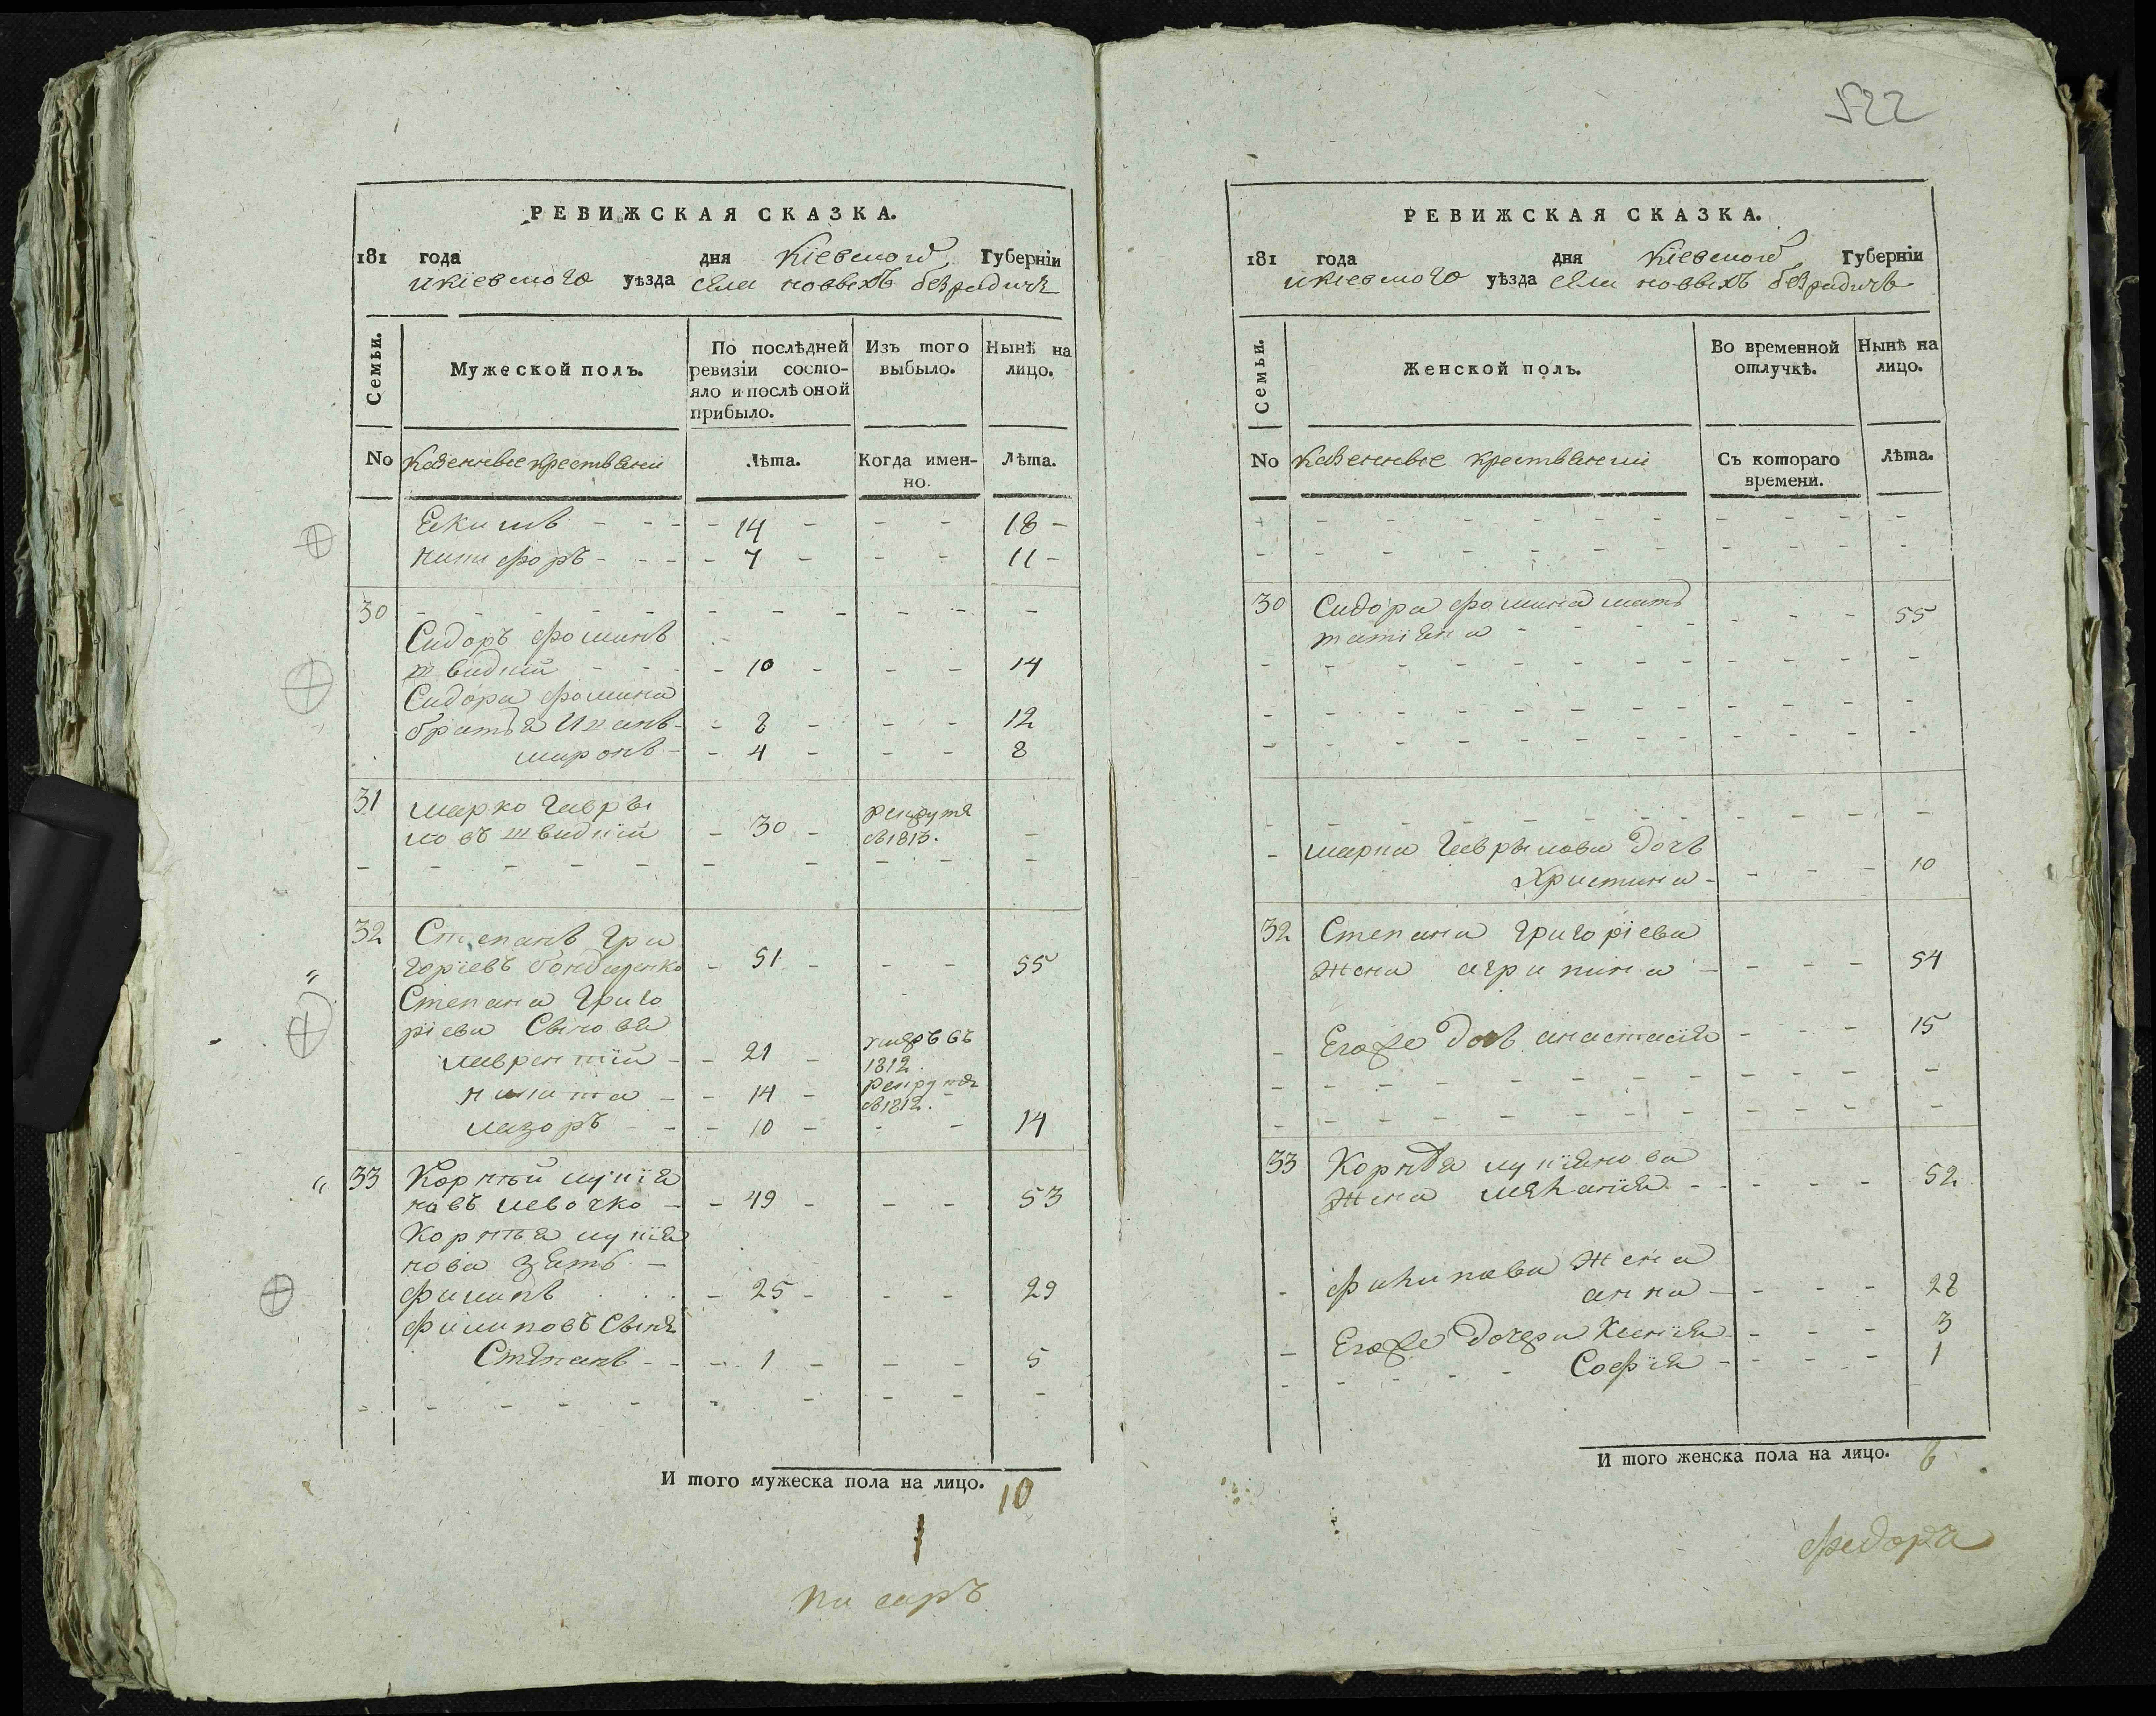 522
РЕВИЖСКАЯ СКАЗКА.
181 года дня Кіевской Губерніи
икіевского уѣзда села новыхъ безрадичъ
Семьи.
Мужеской полъ.
По послѣдней ревизіи состо-
яло и послѣ оной
прибыло.
Изъ того
выбыло.
Нынѣ на
лицо.
No Казенные крестьяни
Лѣта.
Когда имен-
но.
Лѣта.
Екимъ - - - 14 - - - 18 -
никифоръ - - - 7 - - - 11 -
30
Сидоръ фоминъ
швидкій - - - 10 - - - 14
Сидора фомина
братья Иванъ - - 8 - - - 12
миронъ - - 4 - - - 8
31 марко гавры
ловъ швидкій - 30 - рекрутъ
въ 1813. -
32 Степанъ Гри
горіевъ бондаренко - 51 - - - 55
Степана Григо
ріева Сыновья
лаврентій - - 21 - умеръ въ
1812.
никита - - 14 - рекрутъ
въ 1812. -
лазоръ - - - 10 - - - 14
33 Корнѣй лукія
новъ левочко - - 49 - - - 53
Корнѣя лукія
нова зять -
филипъ - 25 - - - 29
филиповъ Сынъ
Степанъ - - - 1 - - - 5
И того мужеска пола на лицо. 10
писаръ
РЕВИЖСКАЯ СКАЗКА.
181 года дня Кіевской Губерніи
икіевского уѣзда села новыхъ безрадичъ
Семьи.
Женской полъ.
Во временной
отлучкѣ.
Нынѣ на
лицо.
No Казенные крестьянии
Съ котораго
времени.
Лѣта.
30 Сидора фомина мать
татіяна - - - 55
марка Гаврылова дочь
Христина - - - - 10
32 Степана григоріева
жена агрипина - - - - 54
Егоже дочь анастасія - - - 15
33 Корнѣя лукіянова
жена меланія - - - - - 52
филипова жена
анна - - - - 28
Егоже дочери Ксенія - - - - 3
Софія - - - - 1
И того женска пола на лицо. 6
федоръ